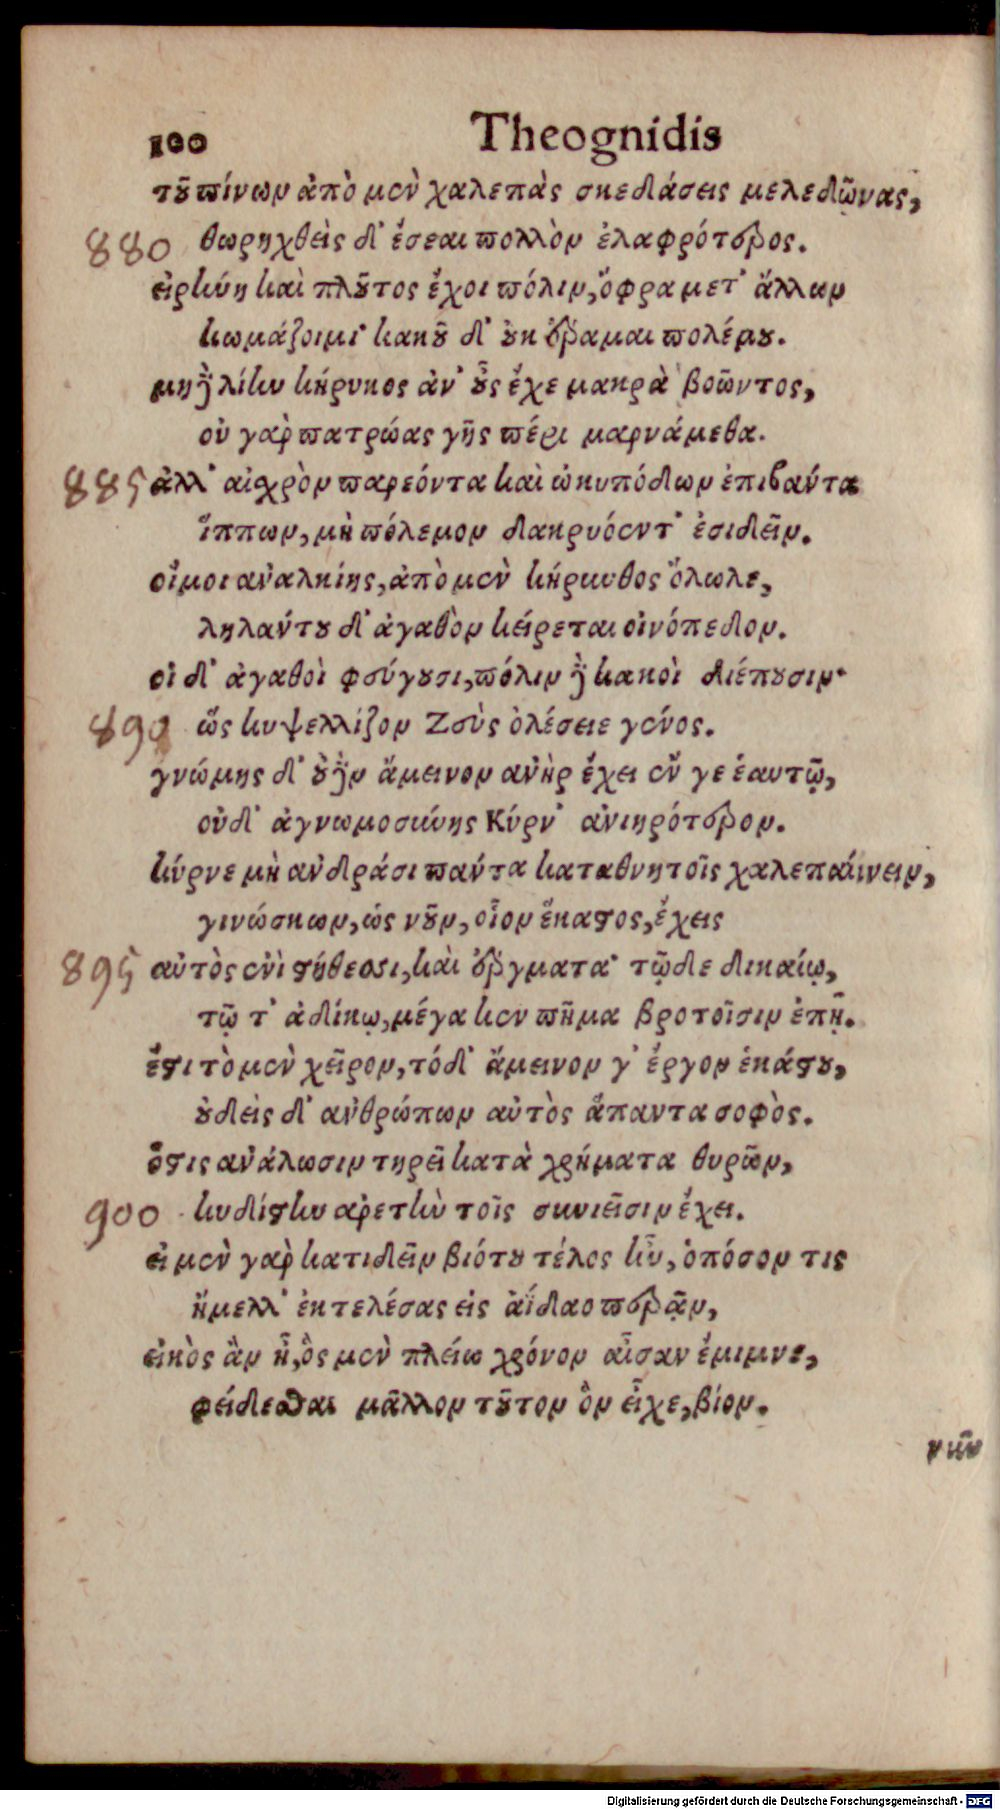 100 Theognidis
τοῦ πίνων ἀπὸ μὲν χαλεπὰς σκεδάσεις μελεδῶνας,
880 θωρηχθεὶς δ' ἔσεαι πολλὸν ἐλαφρότερος.
εἰρήνη καὶ πλοῦτος ἔχοι πόλιν, ὄφρα μετ' ἄλλων
κωμάζοιμι· κακοῦ δ' οὐκ ἔραμαι πολέμου.
μηδὲ λίην κήρυκος ἀν' οὖς ἔχε μακρὰ βοῶντος,
οὐ γὰρ πατρώας γῆς πέρι μαρνάμεθα.
885 ἀλλ' αἰχρὸν παρεόντα καὶ ὠκυπόδων ἐπιβάντα
ἵππων, μὴ πόλεμον δακρυόεντ' ἐσιδεῖν.
οἴμοι ἀναλκίης, ἀπὸ μὲν κήρκυθος ὄλωλε,
ληλάντου δ' ἀγαθὸν κείρεται οἰνόπεδον.
οἱ δ' ἀγαθοὶ φεύγουσι, πόλιν δὲ κακοὶ διέπουσιν·
890 ὥς κυψελλίζον Ζεὺς ὀλέσειε γένος.
γνώμης δ' οὐδὲν ἄμεινον ἀνὴρ ἔχει ἔν γε ἑαυτῷ,
οὐδ' ἀγνωμοσύνης Κύρν' ἀνιηρότερον.
κύρνε μὴ ἀνδράσι πάντα καταθνητοῖς χαλεπαίνειν,
γινώσκων, ὡς νῦν, οἷον ἕκαστος, ἔχεις
895 αὐτὸς ἐνὶ στήθεσσι, καὶ ἔργματα· τῷδε δικαίῳ,
τῷ τ' ἀδίκῳ, μέγα κεν πῆμα βροτοῖσιν ἐπῆν.
ἔστι τὸ μὲν χεῖρον, τόδ' ἄμεινον γ' ἔργον ἑκάστου,
οὐδεὶς δ' ἀνθρώπων αὐτὸς ἅπαντα σοφὸς.
ὅστις ἀνάλωσιν τηρεῖ κατὰ χρήματα θυρῶν,
900 κυδίστην ἀρετὴν τοῖς συνιεῖσιν ἔχει.
εἰ μὲν γὰρ κατιδεῖν βιότου τέλος ἦν, ὁπόσον τις
ἤμελλ' ἐκτελέσας εἰς ἀΐδαο περᾷν,
εἰκὸς ἂν ἦ, ὃς μὲν πλείω χρόνον αἶσαν ἔμιμνε,
φείδεσθαι μᾶλλον τοῦτον ὃν εἶχε, βίον.
νῦν